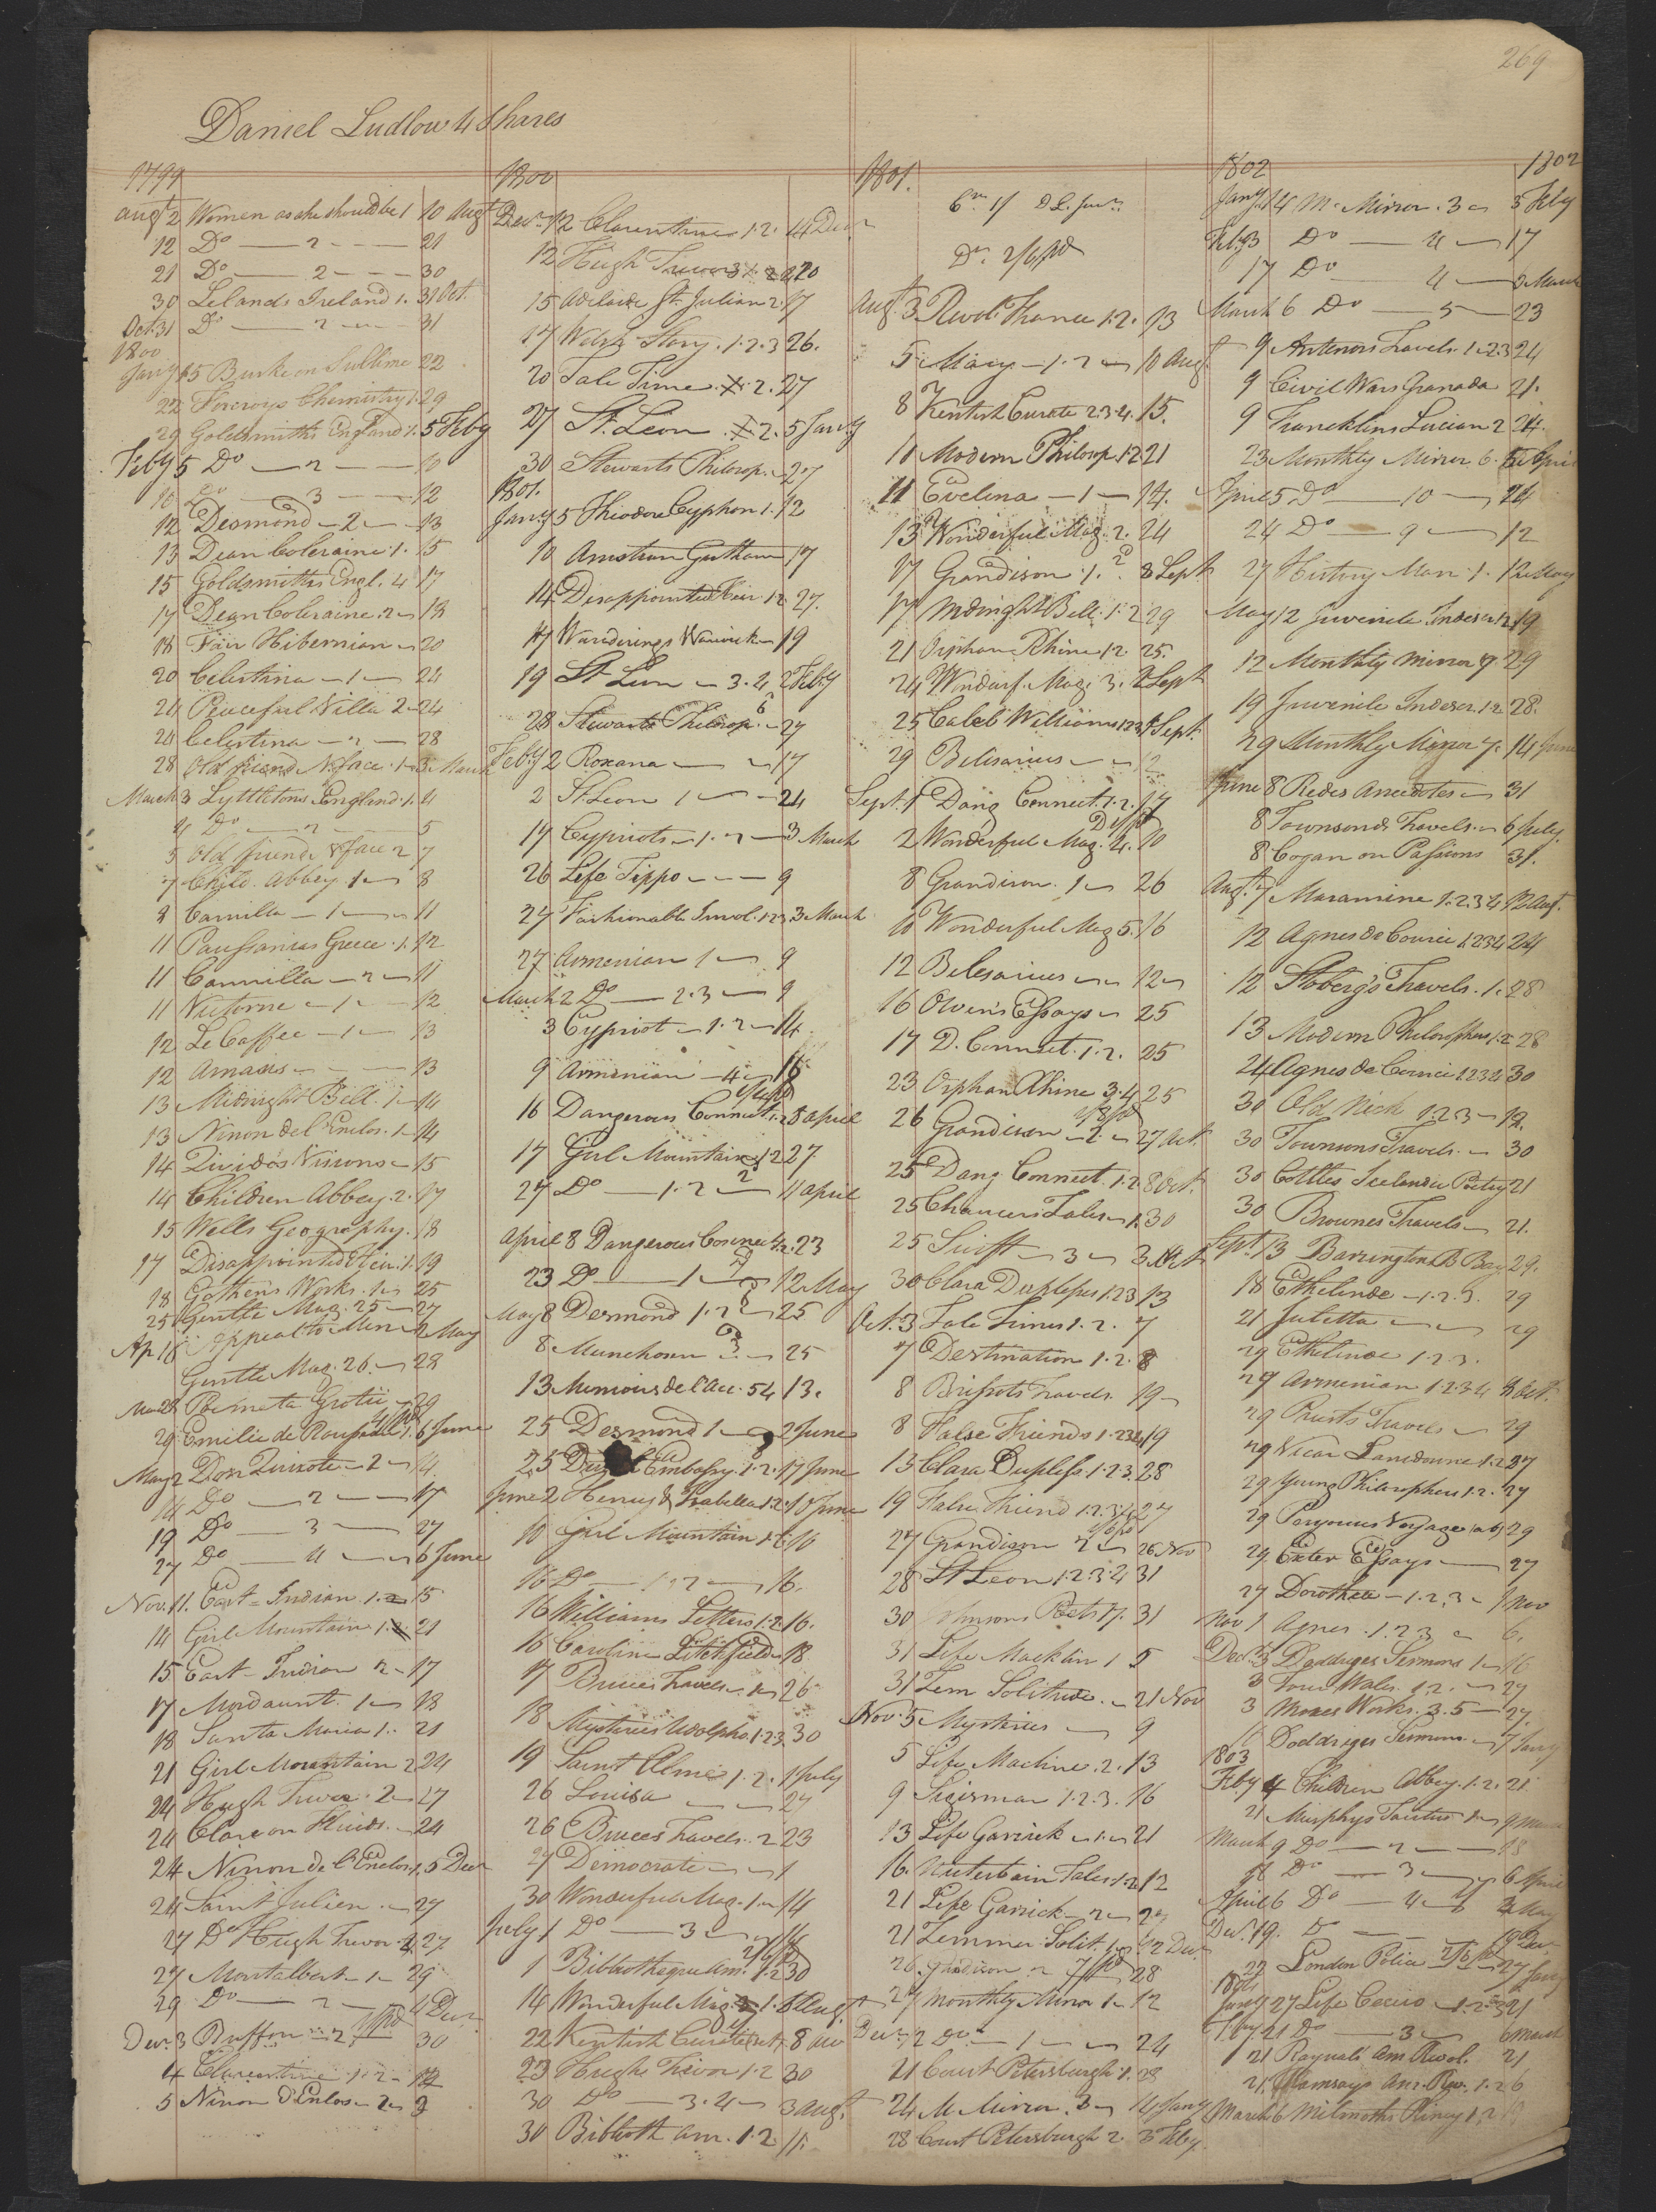 269
Daniel Ludlow 4 Shares
1799
Augt 2 Women as she should be 1 10 Augt
12 Do — 2 — 21
21 Do — 2 — 30
30 Lelands Ireland 1. 31 Oct.
Oct. 31 Do — 2 — 31
1800
Jany 15 Burke on Sublime 22
22 Forcroys Chemistry 1. 29
29 Goldsmiths England 1. 5 Feby
Feby 5 Do — 2 — 10
10 Do — 3 — 12
12 Desmond — 2 — 13
13 Dean Coleraine. 1. 15
15 Goldsmiths Engl. 4 17
17 Dean Coleraine. 2 18
18 Fair Hibernian 20
20 Celestina — 1 — 24
24 Peaceful Villa 2 24
24 Celestina — 2 — 28
28 Old friend N. face. 1 3 March
March 3 Lyttletons England. 1. 4
4 Do — 2 — 5
5 Old friend & face 2 7
7 Child. Abbey 1 8
8 Camilla — 1 — 11
11 Pausanias Greece. 1. 12
11 Cammilla — 2 — 11
11 Victorine — 1 — 12
12 Le Caffee — 1 — 13
12 Amasis — 13
13 Midnight Bell. 1 14
13 Ninon del Enclos. 1 14
14 Quividos Visions 15
14 Children Abbey. 2. 17
15 Wells Geography. 18
17 Disappointed Heir. 1. 19
18 Gothers Works. 1 25
25 Gentle Mag. 25 — 27
Ap 16 Appeal to Men 2 May
Gentle Mag. 26. 28
28 Poemata Grotii 29
29 Emilie de 1. 6 June
May 2 Don Quixote — 2 — 14
14 Do — 2 — 17
19 Do — 3 — 27
27 Do — 4 — 6 June
Nov. 11. East-Indian. 1. 2 15
14 Girl Mountain 1. 21
15 East-Indian 2 17
17 Mordaunt. 1 18
18 Santa Maria 1. 21
21 Girl Mountain 2 24
24 Hugh Trevor. 2 27
24 Clare on Fluids. 24
24 Ninon de l'Enclos 1. 5 Decr
24 Saint Julien. 27
27 Do Hugh Trevor. 27
27 Montalbert — 1 — 29
29 Do — 2 — 4 Decr
Decr 3 Buffon 2 30
4 Clarentine. 1. 2 12
5 Ninon d'Enlos 2
1800
Decr. 12 Clarentine 1. 2. 14 Decr
12 Hugh Trevor 3 20
15 Adelaide St. Julian 2. 17
17 Welsh Story. 1. 2. 3 26.
20 Tale Times. 2. 27
27 St. Leon 2. 5 Jany
30 Stewarts Philosop. 27
1801.
Jany 5 Theodore Cyphon 1. 12
10 17
14 Disappointed Heir. 1. 2 27.
17 Wanderings Warwick 19
19 St Leon — 3. 4 2 Feby
28 Stewarts Philosop. 27
Feby 2 Roxana — 17
2 St. Leon 1 — 24
17 Cypriots — 1. 2 — 3 March
26 Life Tippo — 9
27 Fashionable Invol. 1. 2 3 3 March
27 Armenian 1 — 9
March 2 Do — 2. 3 — 9
3 Cypriot — 1. 2 — 14.
9 Armenian — 4 16
16 Dangerous Connect. 1. 2 8 April
17 Girl Mountain 1. 2 27
27 Do — 1. 2 — 11 April
April 8 Dangerous Connec 1/2. 23
23 Do — 1 12 May
May 8 Desmond 1. 2 25
8 Munchosen 3 25
13 Memoirs de l'Acc. 54 13.
25 Desmond 1 — 2 June
25 Embassy. 1. 2. 17 June
June 2 Henry & Isabella 1. 2. 10 June
10 Girl Mountain 1. 2 16
16 Do — 1. 2 — 16.
16 Williams Letters 1. 2 16.
16 Caroline Litchfield 18
17 Bruces Travels 26
18 Mysteries Udolpho. 1. 2 3 30
19 Saint Elme 1. 2. 1 July
26 Louisa — 27
26 Bruces Travels. 2 23
27 Democrate — 1
30 Wonderful Mag. 1 14
July 1 Do — 3 14
1 Bibliotheque Am. 1. 2 30
14 Wonderful Mag. 1. 6 Augt
22 Kentish Curate 8 do
23 Hugh Trevor 1. 2 30
30 Do — 3. 4 3 Augt
30 Biblioth Am. 1. 2 11.
1801.
Augt. 3 Revol. France 1. 2. 13
5 Mary — 1. 2 10 Aug.
8 Kentish Curate 2. 3. 4. 15.
10 Modern Philosop. 1. 2 21
11 Evelina — 1 — 14.
13 Wonderful Mag. 2. 24
17 Grandison. 1. 8 Sept
17 Midnight Bell. 1. 2 29
21 Orphan Rhine 1. 2. 25.
24 Wonderf. Mag. 3. 2 Sept
25 Caleb Williams 1. 2 3 Sept.
29 Belisarius — 12
Sept. 1 Dang Connect. 1. 2. 17
2 Wonderful Mag. 4. 10
8 Grandison. 1 26
10 Wonderful Mag 5. 16
12 Belesarius 12
16 Owen's Essays 25
17 D. Connect. 1. 2. 25
23 Orphan Rhine 3. 4. 25
26 Grandison — 2. 27 Oct.
25 Dang Connect. 1. 2. 8 Oct.
25 Chaucers Tales 1. 30
25 Swift — 3 3. Oct
30 Clara Duplesses 1. 2 3 13
Oct. 3 Tale Times 1. 2. 7
7 Destination 1. 2. 8
8 Brissots Travels. 19
8 False Friends 1. 2 3 4 19
13 Clara Dupless 1. 2. 3. 28
19 False Friend 1. 2. 3. 4 27
27 Grandison 2 26 Nov
28 St Leon 1. 2. 3. 4 31
30 Johnsons Poets 17. 31
31 Life Macklin 1 5
31 Zem Solitude. 21 Nov
Nov. 5 Mysteries — 9
5 Life Macline. 2. 13
9 Sigisman 1. 2. 3. 16
13 Life Garrick 1. 21
16. Winterbain Tales. 1. 2 12
21 Life Garrick — 2
21 Zimmer. Solit. 1. 2 Decr
26 Grandison 2 28
27 Monthly Mirror 1 12
Decr. 12 Do — 1 — 24
21 Court Petersburgh 1. 28
24 M Mirror. 3 14 Jany
28 Court Petersburgh 2 3 Feby.
1802
1802
Jany. 14 M. Mirror. 3 3 Feby
Feby 3 Do — 4 — 17
17 Do — 4 — 3 March
March 6 Do — 5 — 23
9 Antenors Travels. 1. 2 3 24
9 Civil Wars Granada 21.
9 Francklins Lucian 2 24.
23 Monthly Mirror 6. 5 April
April 5 Do — 10 — 24
24 Do — 9 — 12
27 History Man. 1. 12 May
May 12 Juvenile Indescn 1. 2 19
12 Monthly Mirror 7. 29
19 Juvenile Indescn. 1. 2 28.
29 Monthly Mirror 7. 14 June
June 8 Redes Anecdotes 31
8 Townsends Travels. 6 July.
8 Cogan on Passions 31.
Augt. 7 Moramine 1. 2. 3 4 12 Augt.
12 Agnes de Courci 1. 2 3 4 24
12 Stobergs Travels. 1. 28
13 Modern Philosophers 1. 2 28
24 Agnes de Courci 1. 2 3 4 30
30 Old Nick 1. 2. 3 19.
30 Townsons Travels. 30
30 Cottles Icelandic Poetry 21
30 Brownes Travels 21.
Sept. 13 Barrington B Bay 29.
18 Ethelinde — 1. 2. 3. 29
21 Julietta — 29
29 Ethelinde 1. 2. 3.
29 Armenian 1. 2. 3 4 8 Oct.
29 Pruits Travels 29
29 Vicar Lansdowne 1. 2 27
29 Young Philosophers 1. 2. 27
29 Voyage 29
29. Exter Essays — 27
27 Dorothea — 1. 2. 3 1 Nov
Nov 1 Agnes. 1. 2. 3 6.
Decr. 3 Doddriges Sermons 1 16
3 Tour Wales. 1. 2. 27
3 Mores Works. 3. 5 — 27.
16 Doddriges Sermons. 7 Jany
1803
Feby 4 Children Abbey. 1. 2. 21
21 Murphys Tacitus 1 9 March
March 9 Do — 2 — 18
18 Do — 3 — 6 April
April 6 Do — 4 May
Decr. 19. Do
27 London Police 27 Jany
1804
Jany 27 Life Cicero 1. 2 21
Feby 21 Do — 3 6 March
21 Raynals Am Revol. 21
21. Ramsays Am. Rev. 1. 2 6
March 6 Milmoths Pliney 1. 2